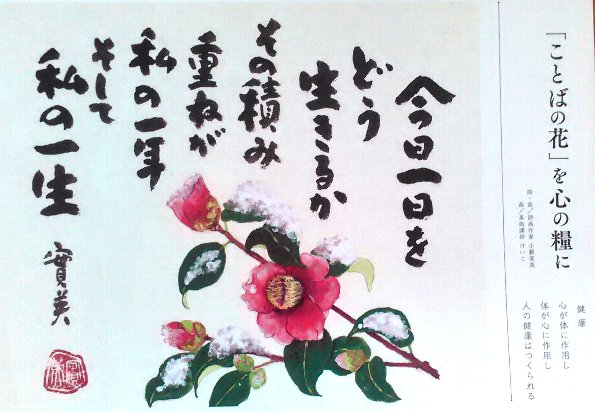 「ことばの花」を心の糧に
詩・画/詩画作家 小藪実英
画/美術講師 けいこ
健康
心が体に作用し
体が心に作用し
人の健康はつくられる
今日一日を
どう
生きるか
その積み
重ねが
私の一年
そして
私の一生
實英